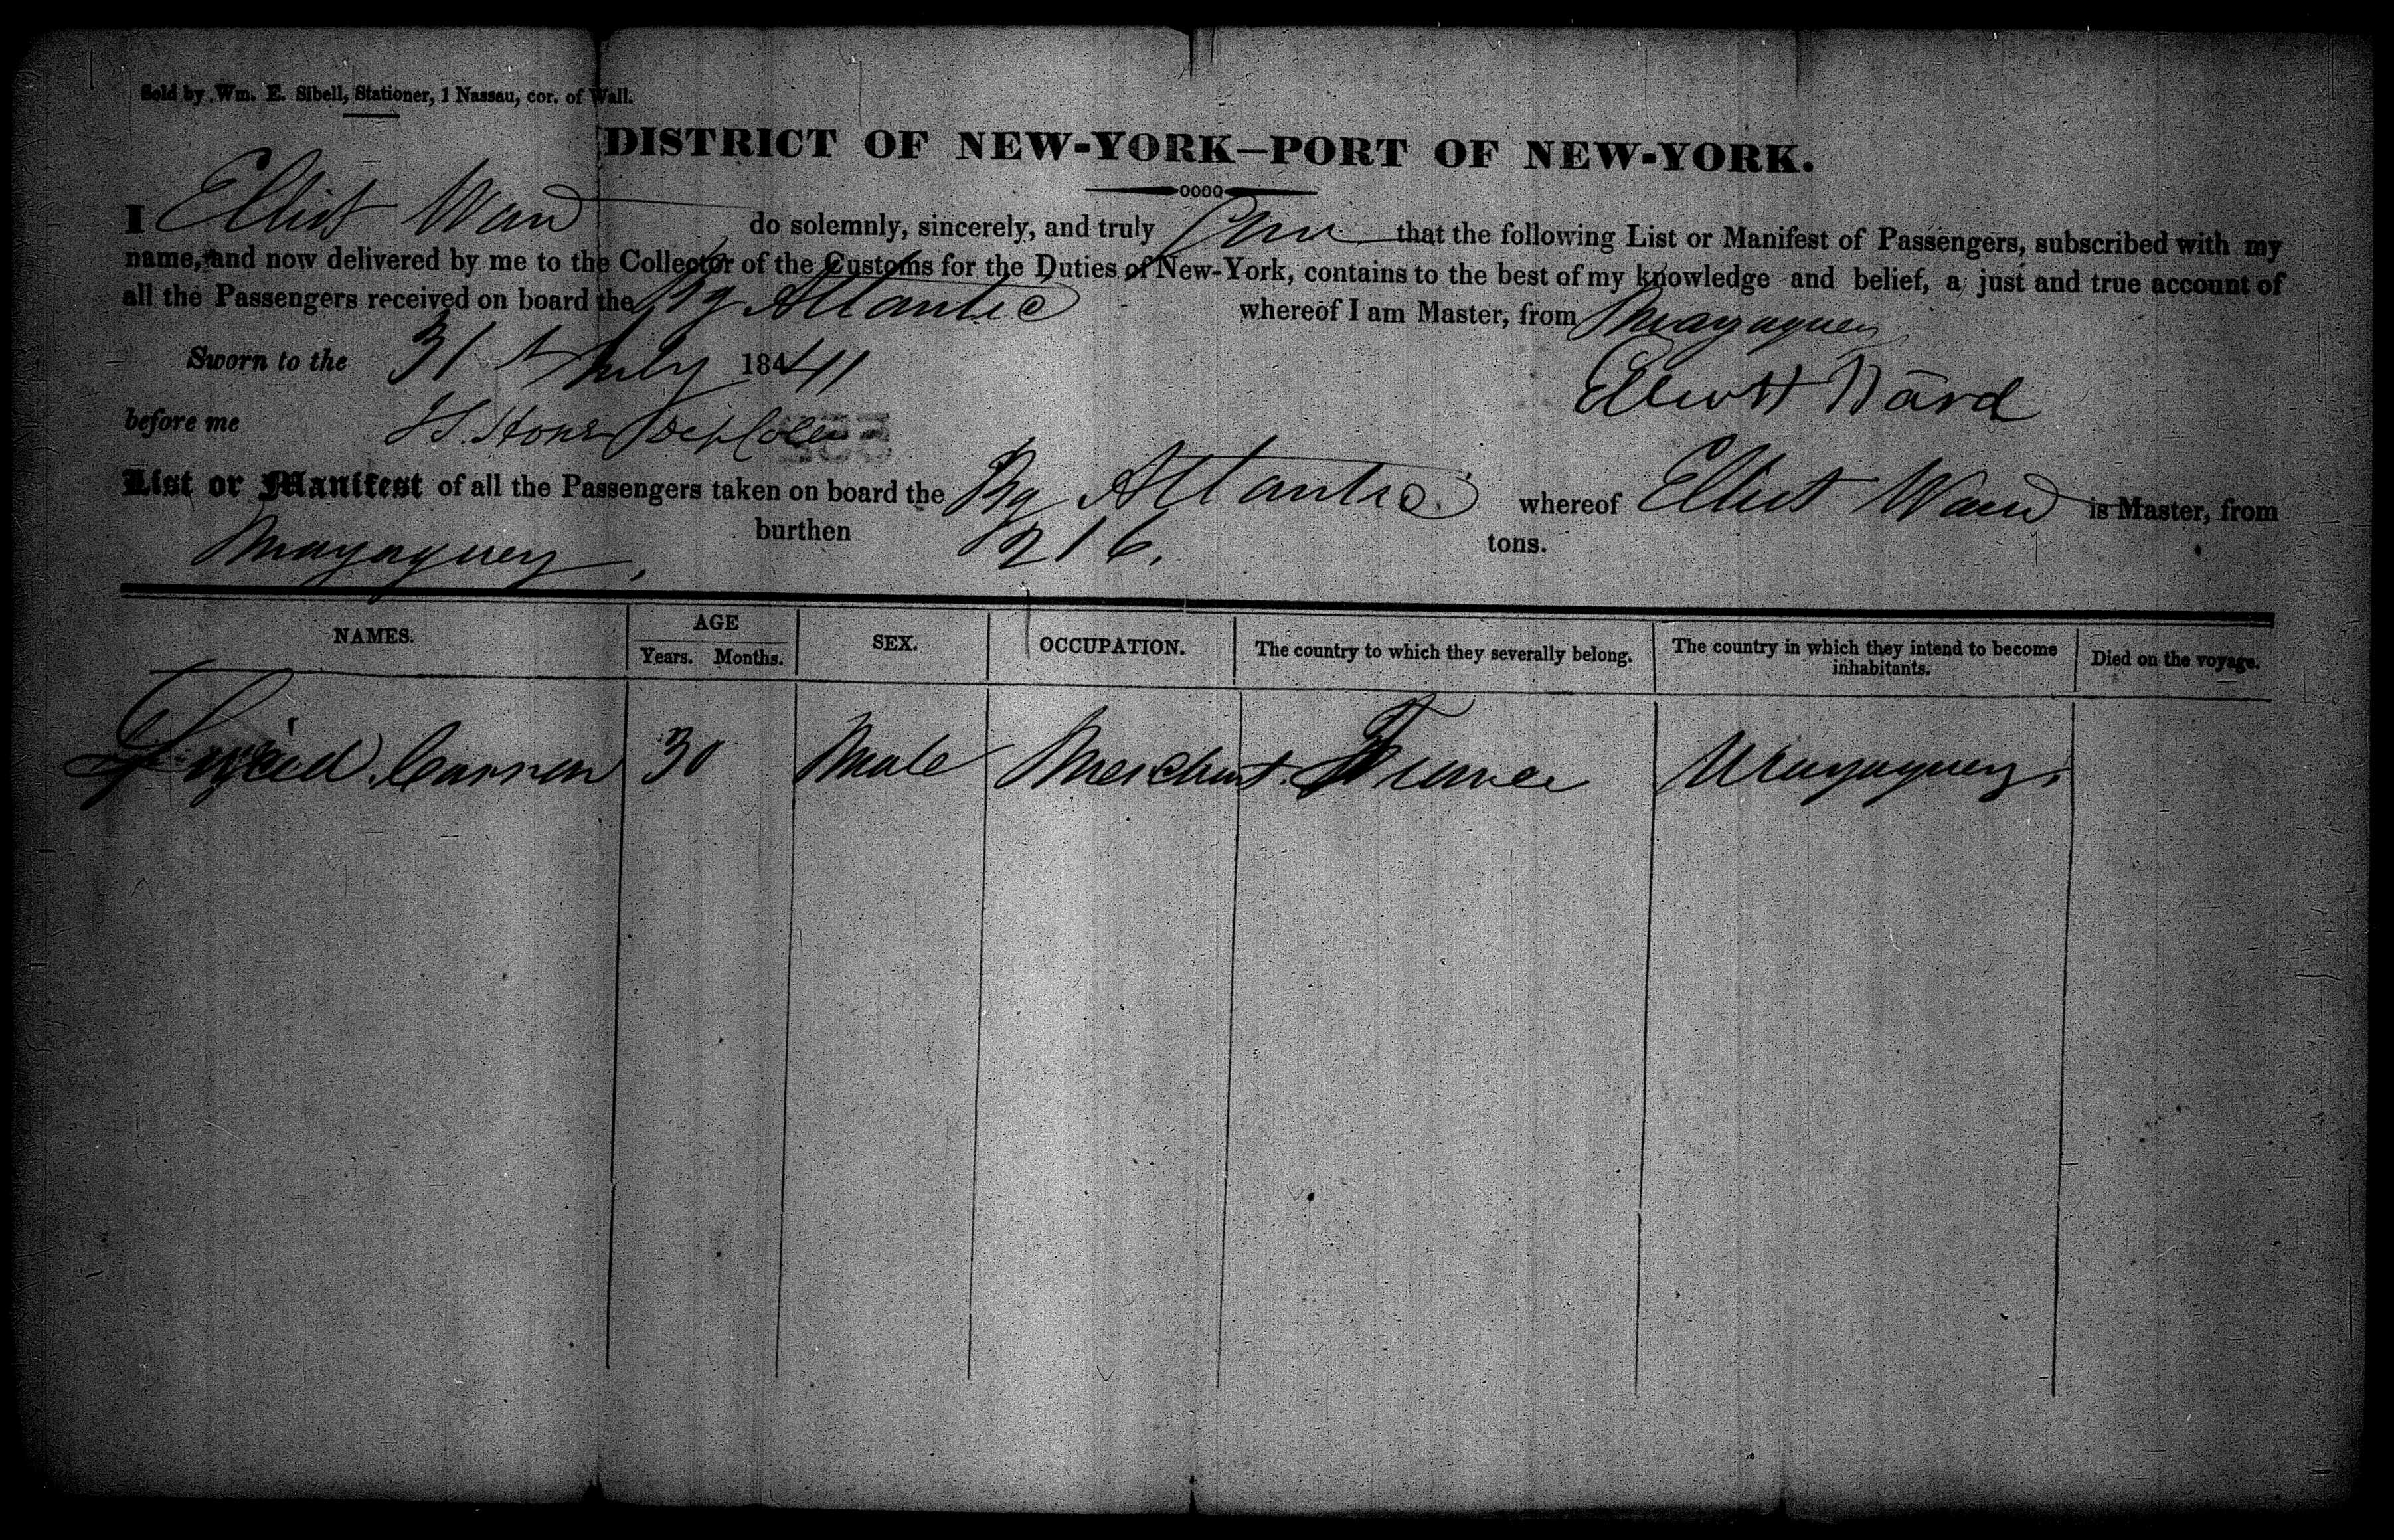 Sold by Wm. E. Sibell, Stationer, 1 Nassau, cor. of Wall.
DISTRICT OF NEW-YORK—PORT OF NEW-YORK.
I Elliott Ward do solemnly, sincerely, and truly that the following List or Manifest of Passengers, subscribed with my
name, and now delivered by me to the Collector of the Customs for the Duties of New-York, contains to the best of my knowledge and belief, a just and true account of
all the Passengers received on board the Bg Atlantic whereof I am Master, from Mayaguez
Sworn to the 31st July 1841
Elliott Ward
before me
List or Manifest of all the Passengers taken on board the Bg Atlantic whereof Elliott Ward is Master, from
Mayaguez, burthen 216. tons.
NAMES. AGE Years. Months. SEX. OCCUPATION. The country to which they severally belong. The country in which they intend to become inhabitants. Died on the voyage.
30 Male Merchant France Mayaguez